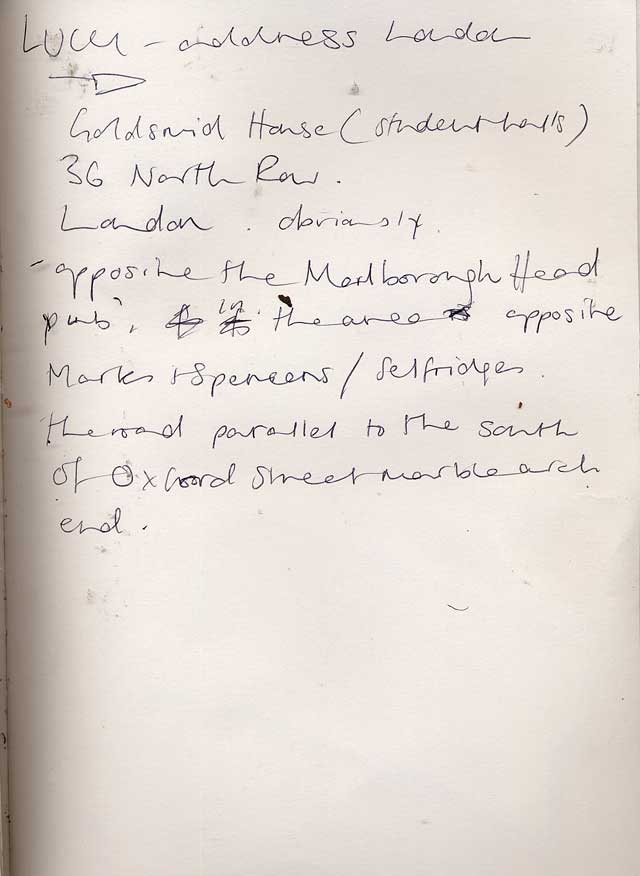 LUCU - address London
Goldsmid House (student halls)
36 North Row.
London . obviously.
- opposite the Marlborough Head
pub, in the area opposite
Marks + Spencers / Selfridges.
the road parallel to the south
of Oxford Street marble arch
end.